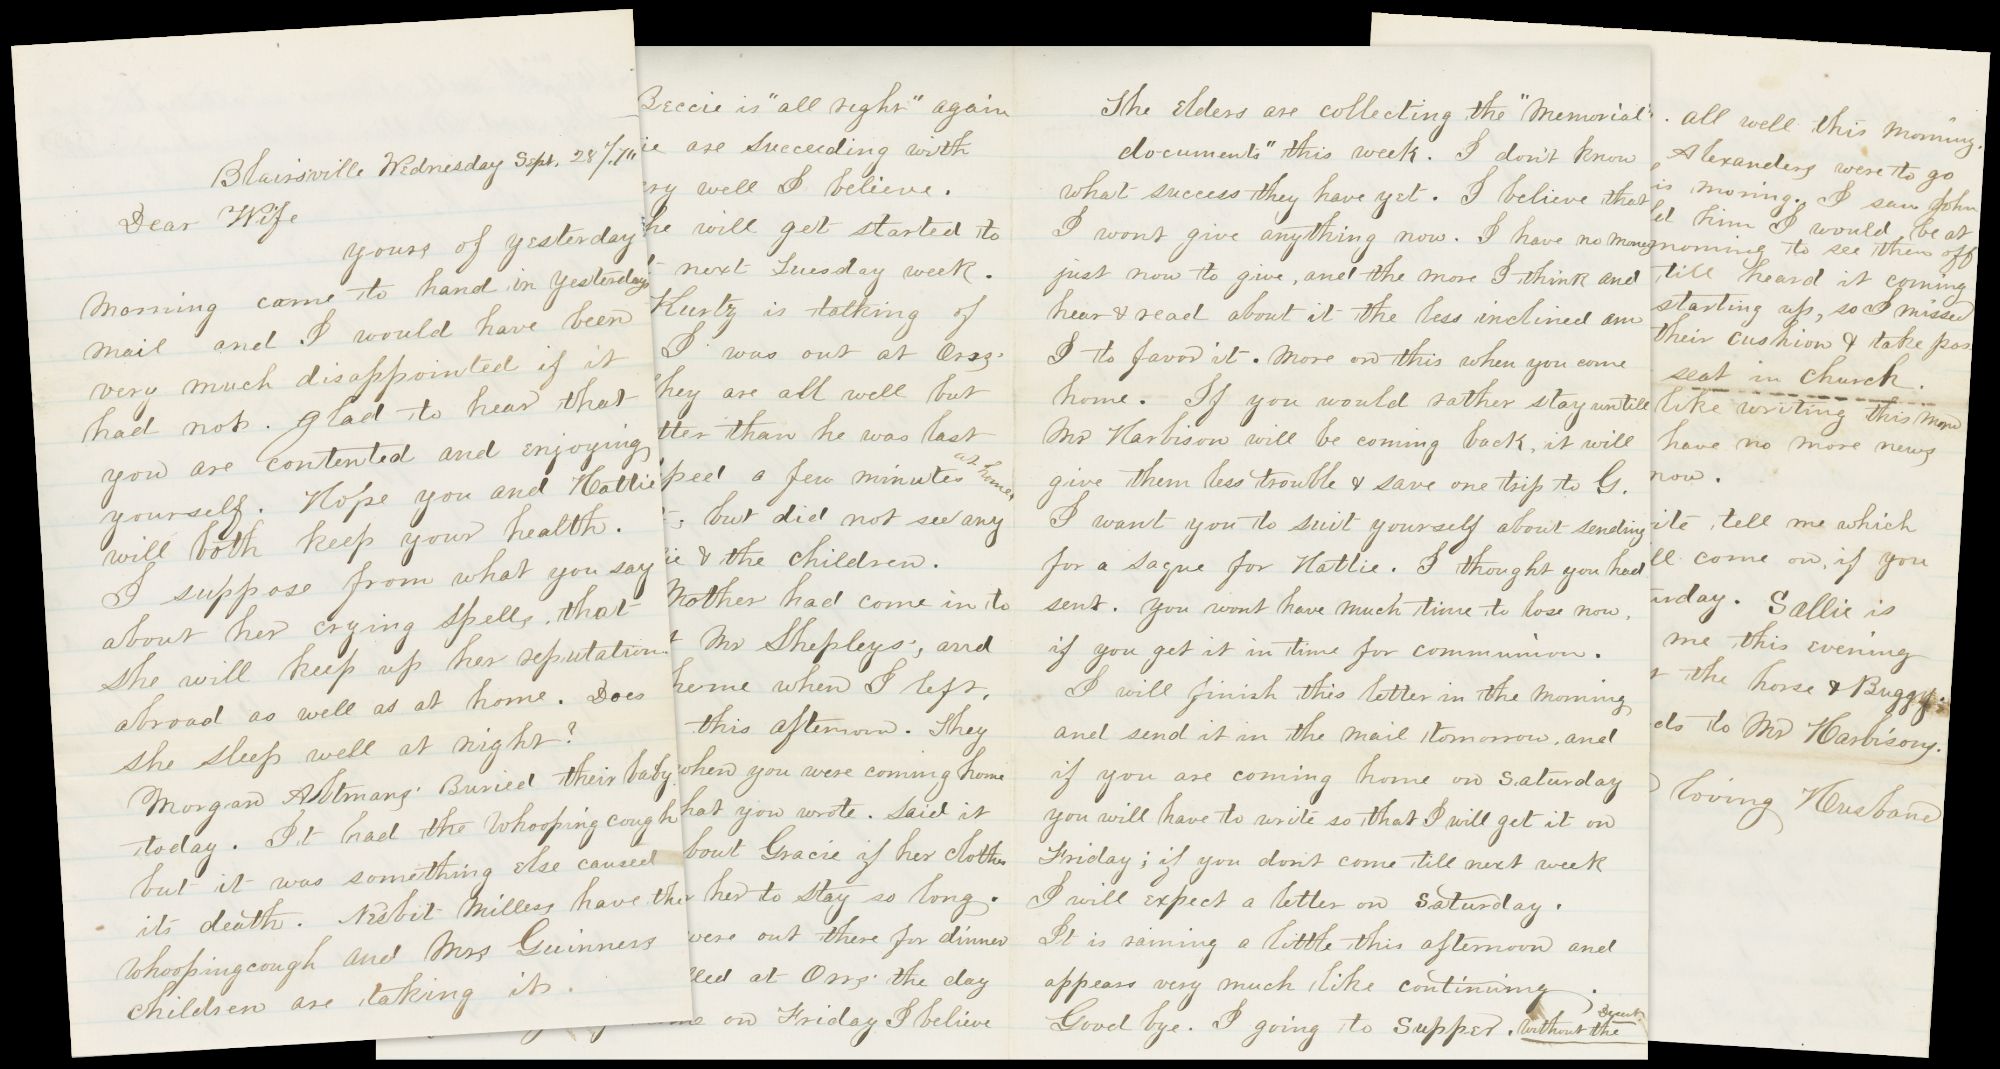 Blairsville Wednesday Sept. 28th/70
Dear Wife
yours of yesterday
morning came to hand in yesterdays
mail and I would have been
very much disappointed if it
had not. Glad to hear that
you are contented and enjoying
yourself. Hope you and Hattie
will both keep your health.
I suppose from what you say
about her crying spells, that
she will keep up her reputation
abroad as well as at home. Does
she sleep well at night?
Morgan Altmans' Buried their baby
today. It had the Whoopingcough
but it was something else caused
its death. Nesbit Millers have the
whoopingcough and Mrs Guinness
children are taking it.
Beccie is "all right" again
are succeeding with
very well I believe.
he will get started to
next Tuesday week.
Kurtz is talking of
I was out at Orrs.
They are all well but
than he was last
a few minutes at home
but did not see any
& the children.
Mother had come in to
Mr Shepleys', and
home when I left,
this afternoon. They
when you were coming home
what you wrote. Said it
about Gracie if her clothes
her to stay so long.
were out there for dinner
at Orrs' the day
on Friday I believe
The Elders are collecting the "Memorial
documents" this week. I don't know
what success they have yet. I believe that
I wont give anything now. I have no money
just now to give, and the more I think and
hear & read about it the less inclined am
I to favor it. More on this when you come
home. If you would rather stay untill
Mr Harbison will be coming back, it will
give them less trouble & save one trip to G.
I want you to suit yourself about sending
for a saque for Hattie. I thought you had
sent. You wont have much time to lose now,
if you get it in time for communion.
I will finish this letter in the morning
and send it in the mail tomorrow, and
if you are coming home on Saturday
you will have to write so that I will get it on
Friday; if you don't come till next week
I will expect a letter on Saturday.
It is raining a little this afternoon and
appears very much like continuing.
Good bye. I going to Supper. without the
all well this morning.
Alexanders were to go
moring. I saw John
him I would be at
morning to see them off
till heard it coming
starting up, so I missed
their cushion & take pos
seat in church.
like writing this morn
have no more news
now.
tell me which
come on, if you
Sallie is
me this evening
the horse & Buggy
to Mr Harbisons.
loving Husband